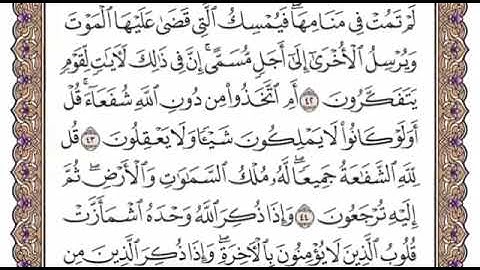 لَمۡ تَمُتۡ فِي مَنَامِهَاۖ فَيُمۡسِكُ ٱلَّتِي قَضَىٰ عَلَيۡهَا ٱلۡمَوۡتَ
وَيُرۡسِلُ ٱلۡأُخۡرَىٰٓ إِلَىٰٓ أَجَلٖ مُّسَمًّىۚ إِنَّ فِي ذَٰلِكَ لَأٓيَٰتٖ لِّقَوۡمٖ
يَتَفَكَّرُونَ ٤٢ أَمِ ٱتَّخَذُواْ مِن دُونِ ٱللَّهِ شُفَعَآءَۚ قُلۡ
أَوَلَوۡ كَانُواْ لَا يَمۡلِكُونَ شَيۡـٔٗا وَلَا يَعۡقِلُونَ ٤٣ قُل
لِّلَّهِ ٱلشَّفَٰعَةُ جَمِيعٗاۖ لَّهُۥ مُلۡكُ ٱلسَّمَٰوَٰتِ وَٱلۡأَرۡضِۖ ثُمَّ
إِلَيۡهِ تُرۡجَعُونَ ٤٤ وَإِذَا ذُكِرَ ٱللَّهُ وَحۡدَهُ ٱشۡمَأَزَّتۡ
قُلُوبُ ٱلَّذِينَ لَا يُؤۡمِنُونَ بِٱلۡأٓخِرَةِۖ وَإِذَا ذُكِرَ ٱلَّذِينَ مِن